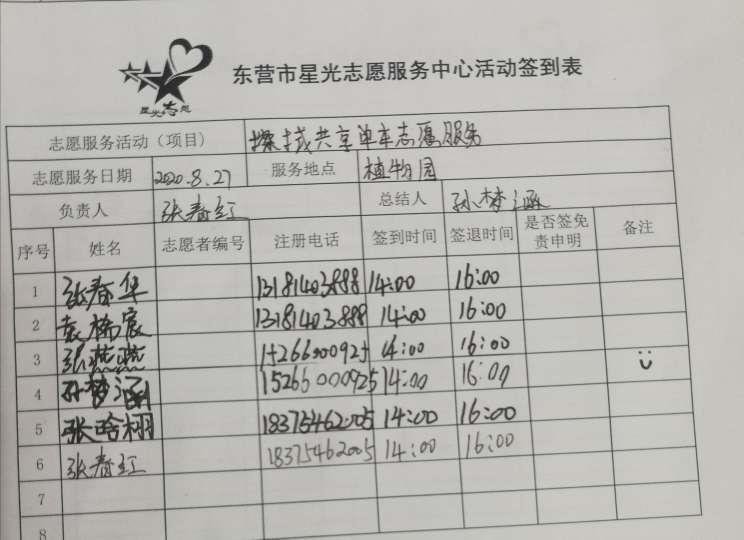 东营市星光志愿服务中心活动签到表
星光志愿
志愿服务活动（项目） 探找共享单车志愿服务
志愿服务日期 2020.8.27 服务地点 植物园
负责人 张春红 总结人 孙梦涵
序号 姓名 志愿者编号 注册电话 签到时间 签退时间 是否签免责申明 备注
1 张春华 13181403888 14:00 16:00
2 袁楠宸 13181403888 14:00 16:00
3 张燕燕 15266000925 14:00 16:00
4 孙梦涵 15266000925 14:00 16:00
5 张晗栩 18375462005 14:00 16:00
6 张春红 18375462005 14:00 16:00
7
8